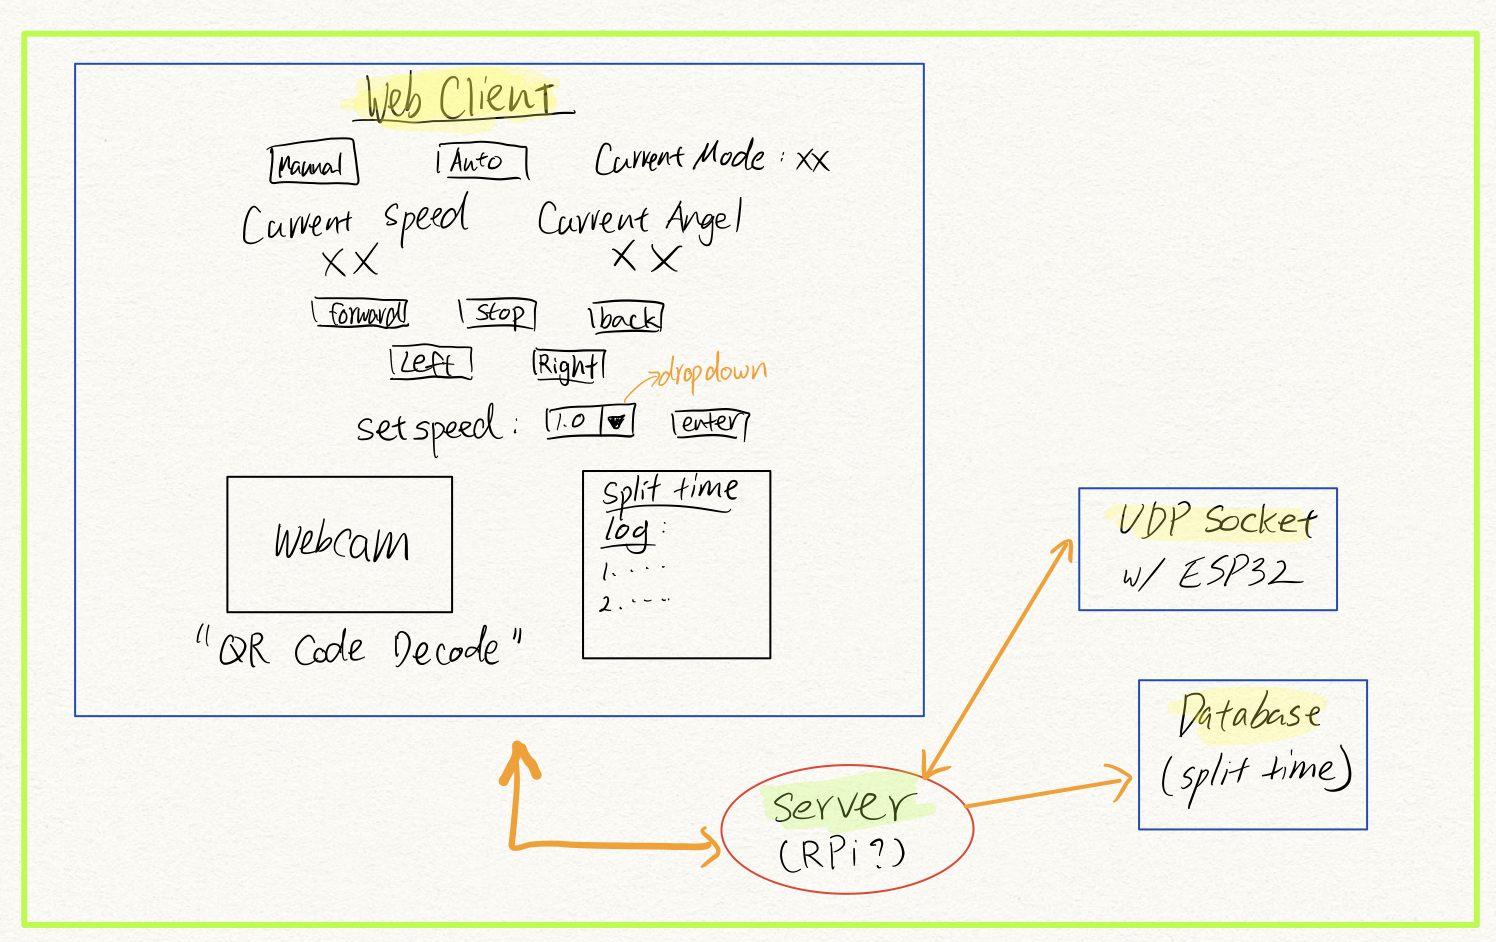 Web Client
Manual Auto Current Mode : XX
Current Speed Current Angel
XX XX
forward stop back
Left Right
dropdown
set speed : 1.0 enter
Webcam
"QR Code Decode"
split time
log :
1. . . . .
2. . . . .
UDP Socket
w/ ESP32
Database
(split time)
Server
(RPi?)